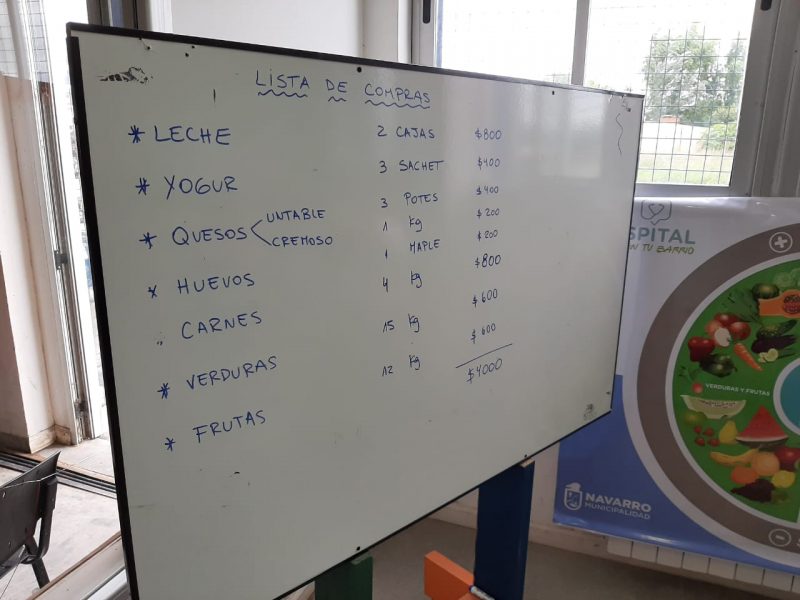 LISTA DE COMPRAS
* LECHE 2 CAJAS $800
* YOGUR 3 SACHET $400
* QUESOS UNTABLE 3 POTES $400
CREMOSO 1 kg $200
* HUEVOS 1 MAPLE $200
CARNES 4 kg $800
* VERDURAS 15 kg $600
* FRUTAS 12 kg $600
$4000
SPITAL
N TU BARRIO
VERDURAS Y FRUTAS
NAVARRO
MUNICIPALIDAD